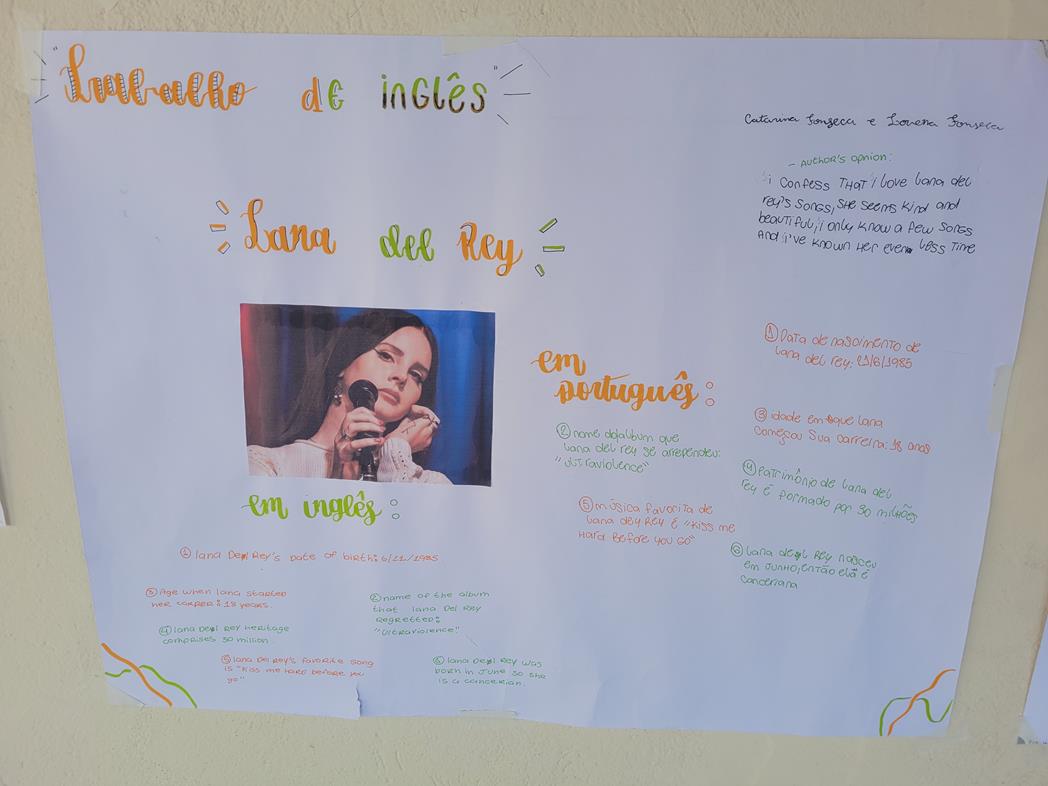 "Trabalho de inglês"
Catarina Fonseca e Lorena Fonseca
- Author's opnion:
i confess that i love Lana del
rey's songs, she seems kind and
beautiful, i only know a few songs
and i've known her even less time
Lana del Rey
① Data de nascimento de
Lana del rey: 21/6/1985
em
português:
③ idade em que Lana
começou sua carreira: 18 anos
② nome do álbum que
Lana del rey se arrependeu:
"Ultraviolence"
④ Patrimônio de Lana del
rey é formado por 30 milhões
⑤ música favorita de
Lana dey Rey é "Kiss me
Hard Before You Go"
⑥ Lana del Rey nasceu
em Junho, então ela é
canceriana
em inglês:
① Lana Del Rey's Date of birth: 6/21/1985
③ Age when Lana started
her career: 18 years.
② name of the album
that Lana Del Rey
regretted:
"Ultraviolence"
④ Lana Del Rey heritage
comprises 30 million.
⑤ Lana Del Rey's favorite song
is "Kiss me Hard before you
go"
⑥ Lana Del Rey was
born in June so she
is a cancerian.